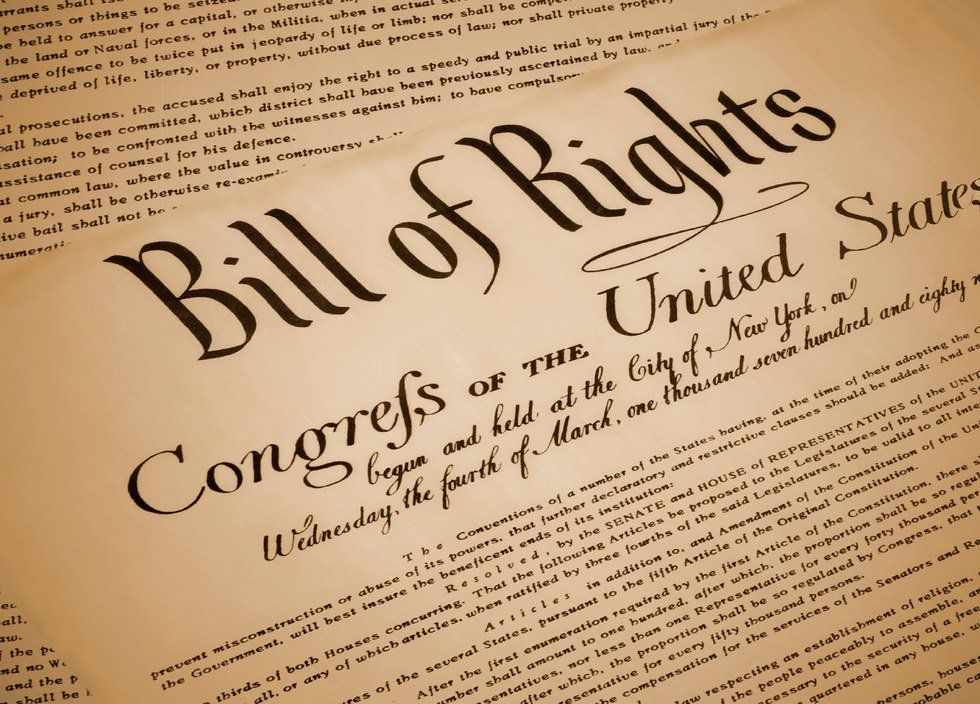 persons or things to be seized
be held to answer for a capital, or otherwise
the land or Naval forces, or in the Militia, when in actual
same offence to be twice put in jeopardy of life or limb; nor shall be
deprived of life, liberty, or property, without due process of law; nor shall private property
prosecutions, the accused shall enjoy the right to a speedy and public trial by an impartial jury of the
shall have been committed, which district shall have been previously ascertained by law,
to be confronted with the witnesses against him; to have
assistance of counsel for his defence.
common law, where the value in controversy
a jury, shall be otherwise
bail shall not be
Bill of Rights
Congreſs OF THE United States
begun and held at the City of New York, on
Wednesday, the fourth of March, one thousand seven hundred and eighty
The Conventions of a number of the States having, at the time of their adopting the
prevent misconstruction or abuse of its powers, that further declaratory and restrictive clauses should be added: And as
the Government, will best insure the beneficent ends of its institution:
Resolved, by the SENATE and HOUSE of REPRESENTATIVES of the
thirds of both Houses concurring. That the following Articles be proposed to the Legislatures of the several
all, or any of which articles, when ratified by three fourths of the said Legislatures, to be valid to all
Articles in addition to, and Amendment of the Constitution of the
of the several States, pursuant to the fifth Article of the Original Constitution.
After the first enumeration required by the first Article of the Constitution, there
shall amount to one hundred, after which, the proportion shall be so
nor less than one Representative for every forty thousand
after which, the proportion shall be so regulated by Congress, that
for every fifty thousand persons.
the compensation for the services of the Senators and
law respecting an establishment of religion,
of the people peaceably to assemble,
necessary to the security of a
quartered in any house,